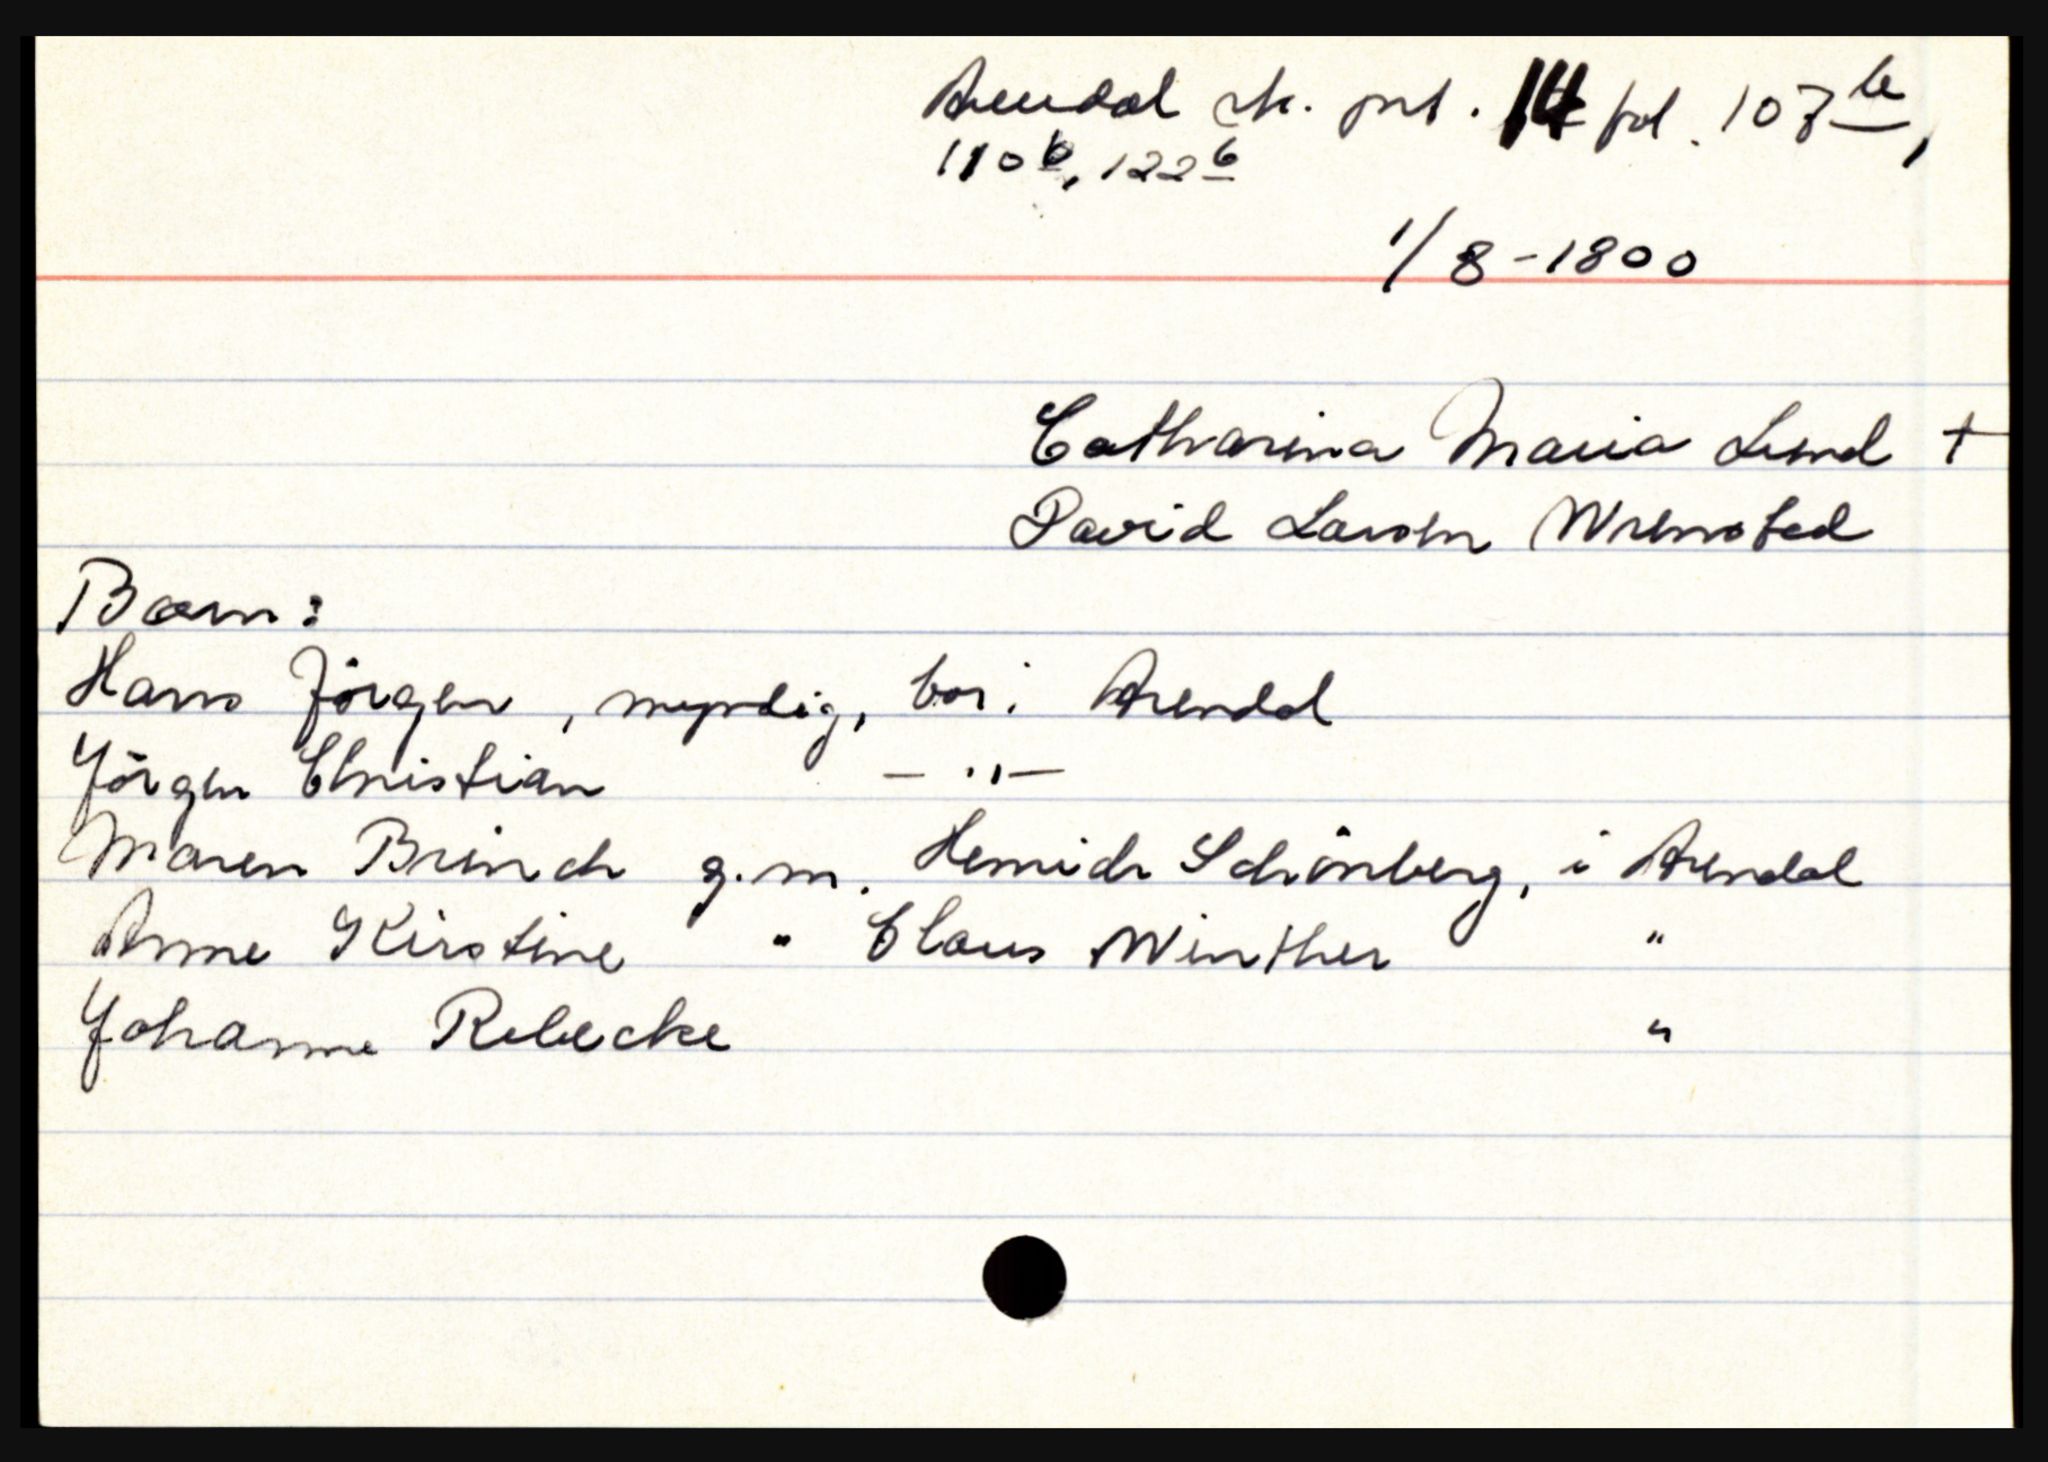 Arendal sk. prt. 14 fol. 107b,
110b, 122b
1/8-1800
Catharina Maria Lund †
David Larsen Wrensted
Børn:
Hans Jörgen, myndig, bor i Arendal
Jörgen Christian — " —
Maren Brinch g.m. Henrich Schönberg, i Arendal
Anne Kirstine " Claus Winther "
Johanne Rebecke "